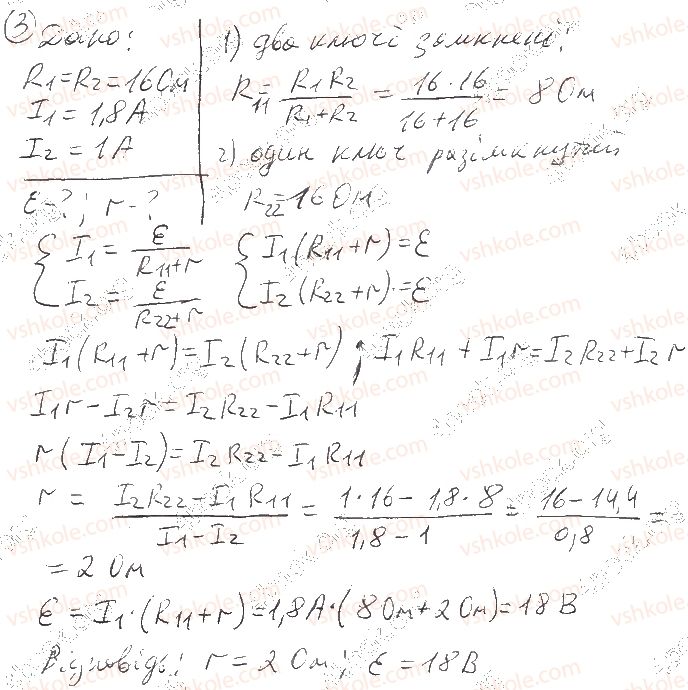 ③ Дано:
R1=R2=16Ом
I1=1,8A
I2=1A
ε-?; r-?
1) два ключі замкнені:
R11=R1R2/(R1+R2) = (16·16)/(16+16) = 8Ом
2) один ключ разімкнутий
R22=16Ом
{I1=ε/(R11+r) {I1(R11+r)=ε
I2=ε/(R22+r) I2(R22+r)=ε
I1(R11+r)=I2(R22+r); I1R11+I1r=I2R22+I2r
I1r-I2r=I2R22-I1R11
r(I1-I2)=I2R22-I1R11
r = (I2R22-I1R11)/(I1-I2) = (1·16-1,8·8)/(1,8-1) = (16-14,4)/0,8 =
= 2 Ом
ε = I1·(R11+r)=1,8A·(8Ом+2Ом)=18В
Відповідь: r=2Ом; ε=18В
vshkole.com